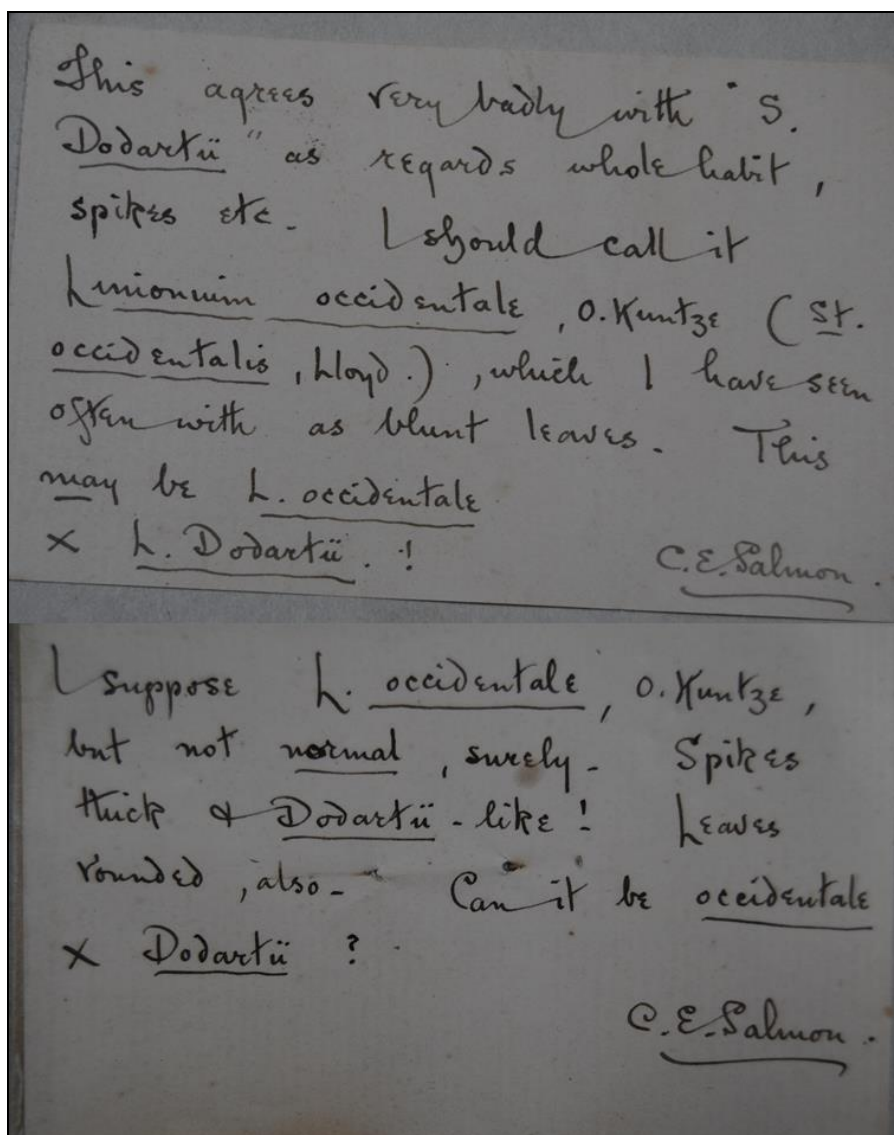 This agrees very badly with "S.
Dodartii" as regards whole habit,
spikes etc. I should call it
Limonium occidentale, O. Kuntze (St.
occidentalis, Lloyd.), which I have seen
often with as blunt leaves. This
may be L. occidentale
× L. Dodartii. !
C.E. Salmon.
I suppose L. occidentale, O. Kuntze,
but not normal, surely. Spikes
thick & Dodartii-like! Leaves
rounded, also. Can it be occidentale
× Dodartii ?
C.E. Salmon.